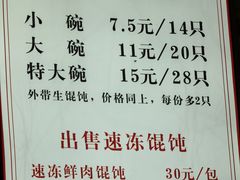 小碗 7.5元/14只
大碗 11元/20只
特大碗 15元/28只
外带生馄饨，价格同上，每份多2只
出售速冻馄饨
速冻鲜肉馄饨 30元/包